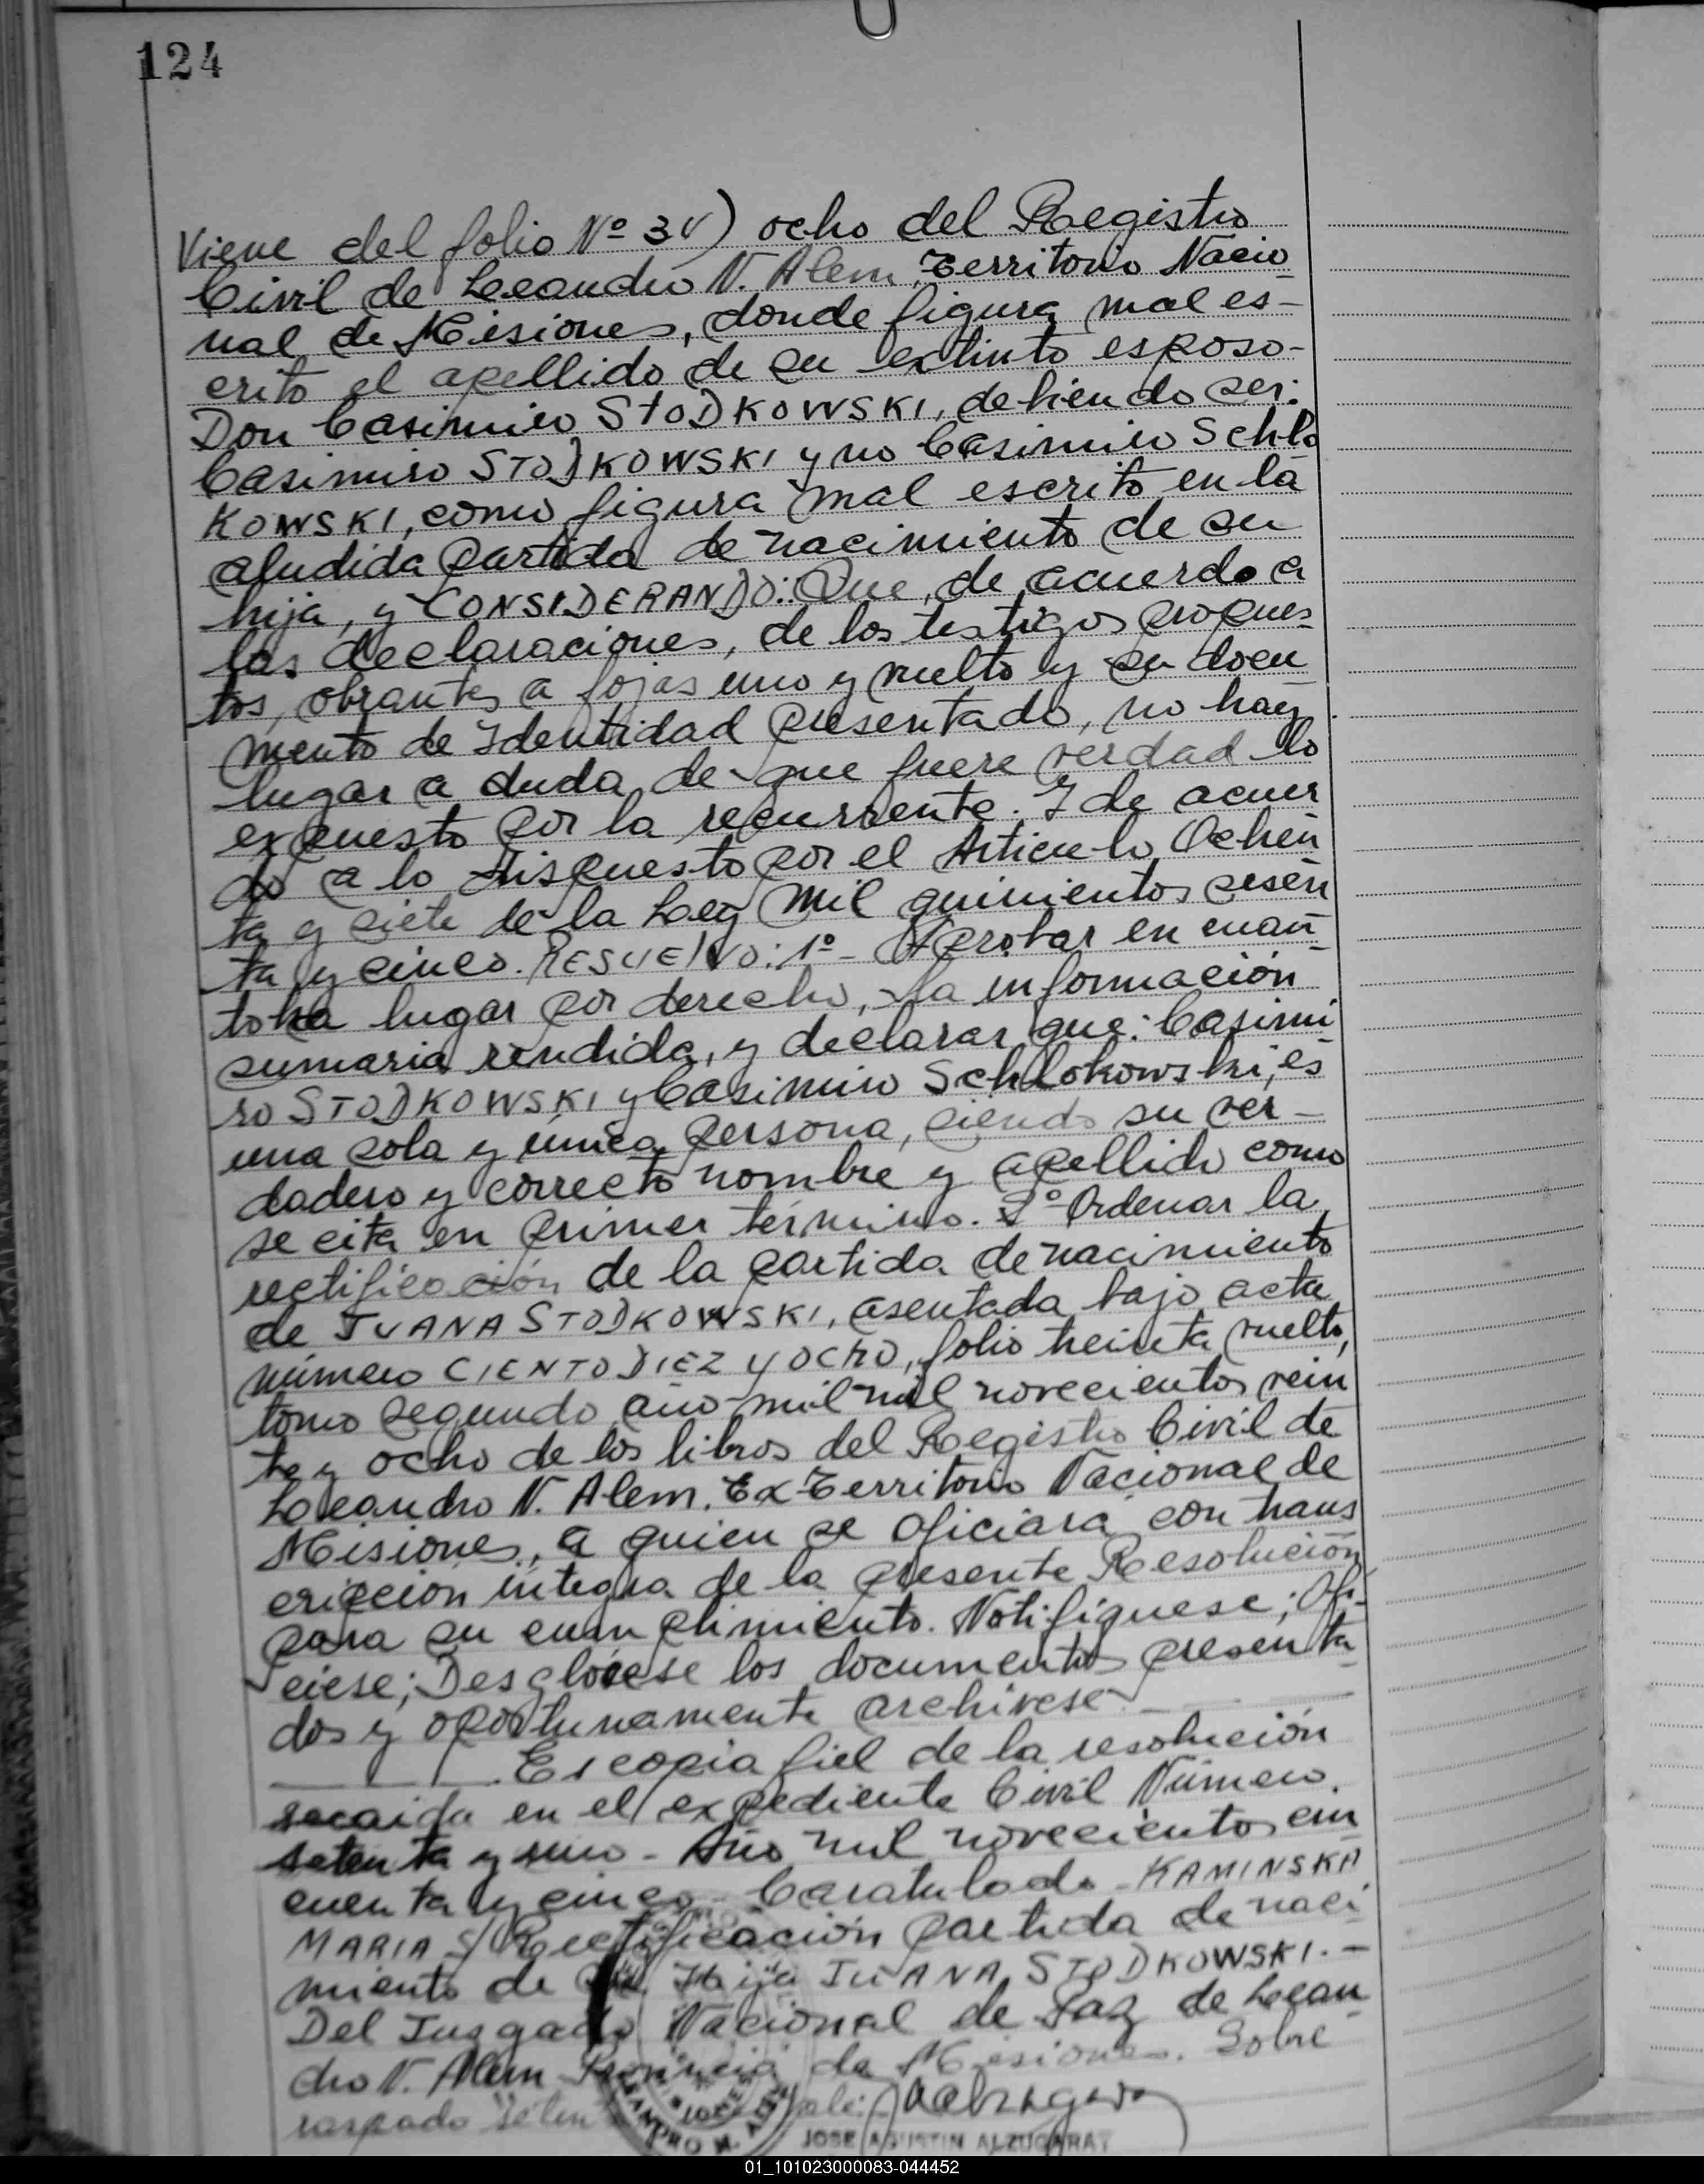 124
Viene del folio Nº 34) ocho del Registro
Civil de Leandro N. Alem, Territorio Nacio
nal de Misiones, donde figura mal es-
crito el apellido de su extinto esposo-
Don Casimiro STODKOWSKI, debiendo ser:
Casimiro STODKOWSKI y no Casimiro Schlo
KOWSKI, como figura mal escrito en la
aludida partida de nacimiento de su
hija, y CONSIDERANDO: Que, de acuerdo a
las declaraciones, de los testigos propues
tos, obrantes a fojas uno y vuelto y su docu
mento de Identidad presentado, no hay
lugar a duda de que fuere verdad lo
expuesto por la recurrente. Y de acuer
do a lo dispuesto por el Articulo Ochen
ta y siete de la Ley Mil quinientos sesen
ta y cinco. RESUELVO: 1º- Aprobar en cuan
to ha lugar por derecho, la información
sumaria rendida, y declarar que: Casimi
ro STODKOWSKI y Casimiro Schlokowski, es
una sola y única persona, siendo su ver-
dadero y correcto nombre y apellido como
se cita en primer término. 2º Ordenar la
rectificación de la partida de nacimiento
de JUANA STODKOWSKI, asentada bajo acta
número CIENTO DIEZ Y OCHO, folio treinta vuelto,
tomo segundo año mil mil novecientos vein
te y ocho de los libros del Registro Civil de
Leandro N. Alem. Ex-Territorio Nacional de
Misiones, a quien se oficiará con trans
cripción integra de la presente Resolución
para su cumplimiento. Notifiquese; Ofi-
ciese; Desglósese los documentos presenta
dos y oportunamente archivese.-
Es copia fiel de la resolución
recaida en el expediente Civil Número
setenta y uno - Año mil novecientos cin
cuenta y cinco - Caratulado - KAMINSKA
MARIA S/ Rectificación partida de naci
miento de su Hija JUANA STODKOWSKI.-
Del Juzgado Nacional de Paz de Lean
dro N. Alem Provincia de Misiones. Sobre
raspado
JOSE AGUSTIN ALZUGARAY
01_101023000083-044452